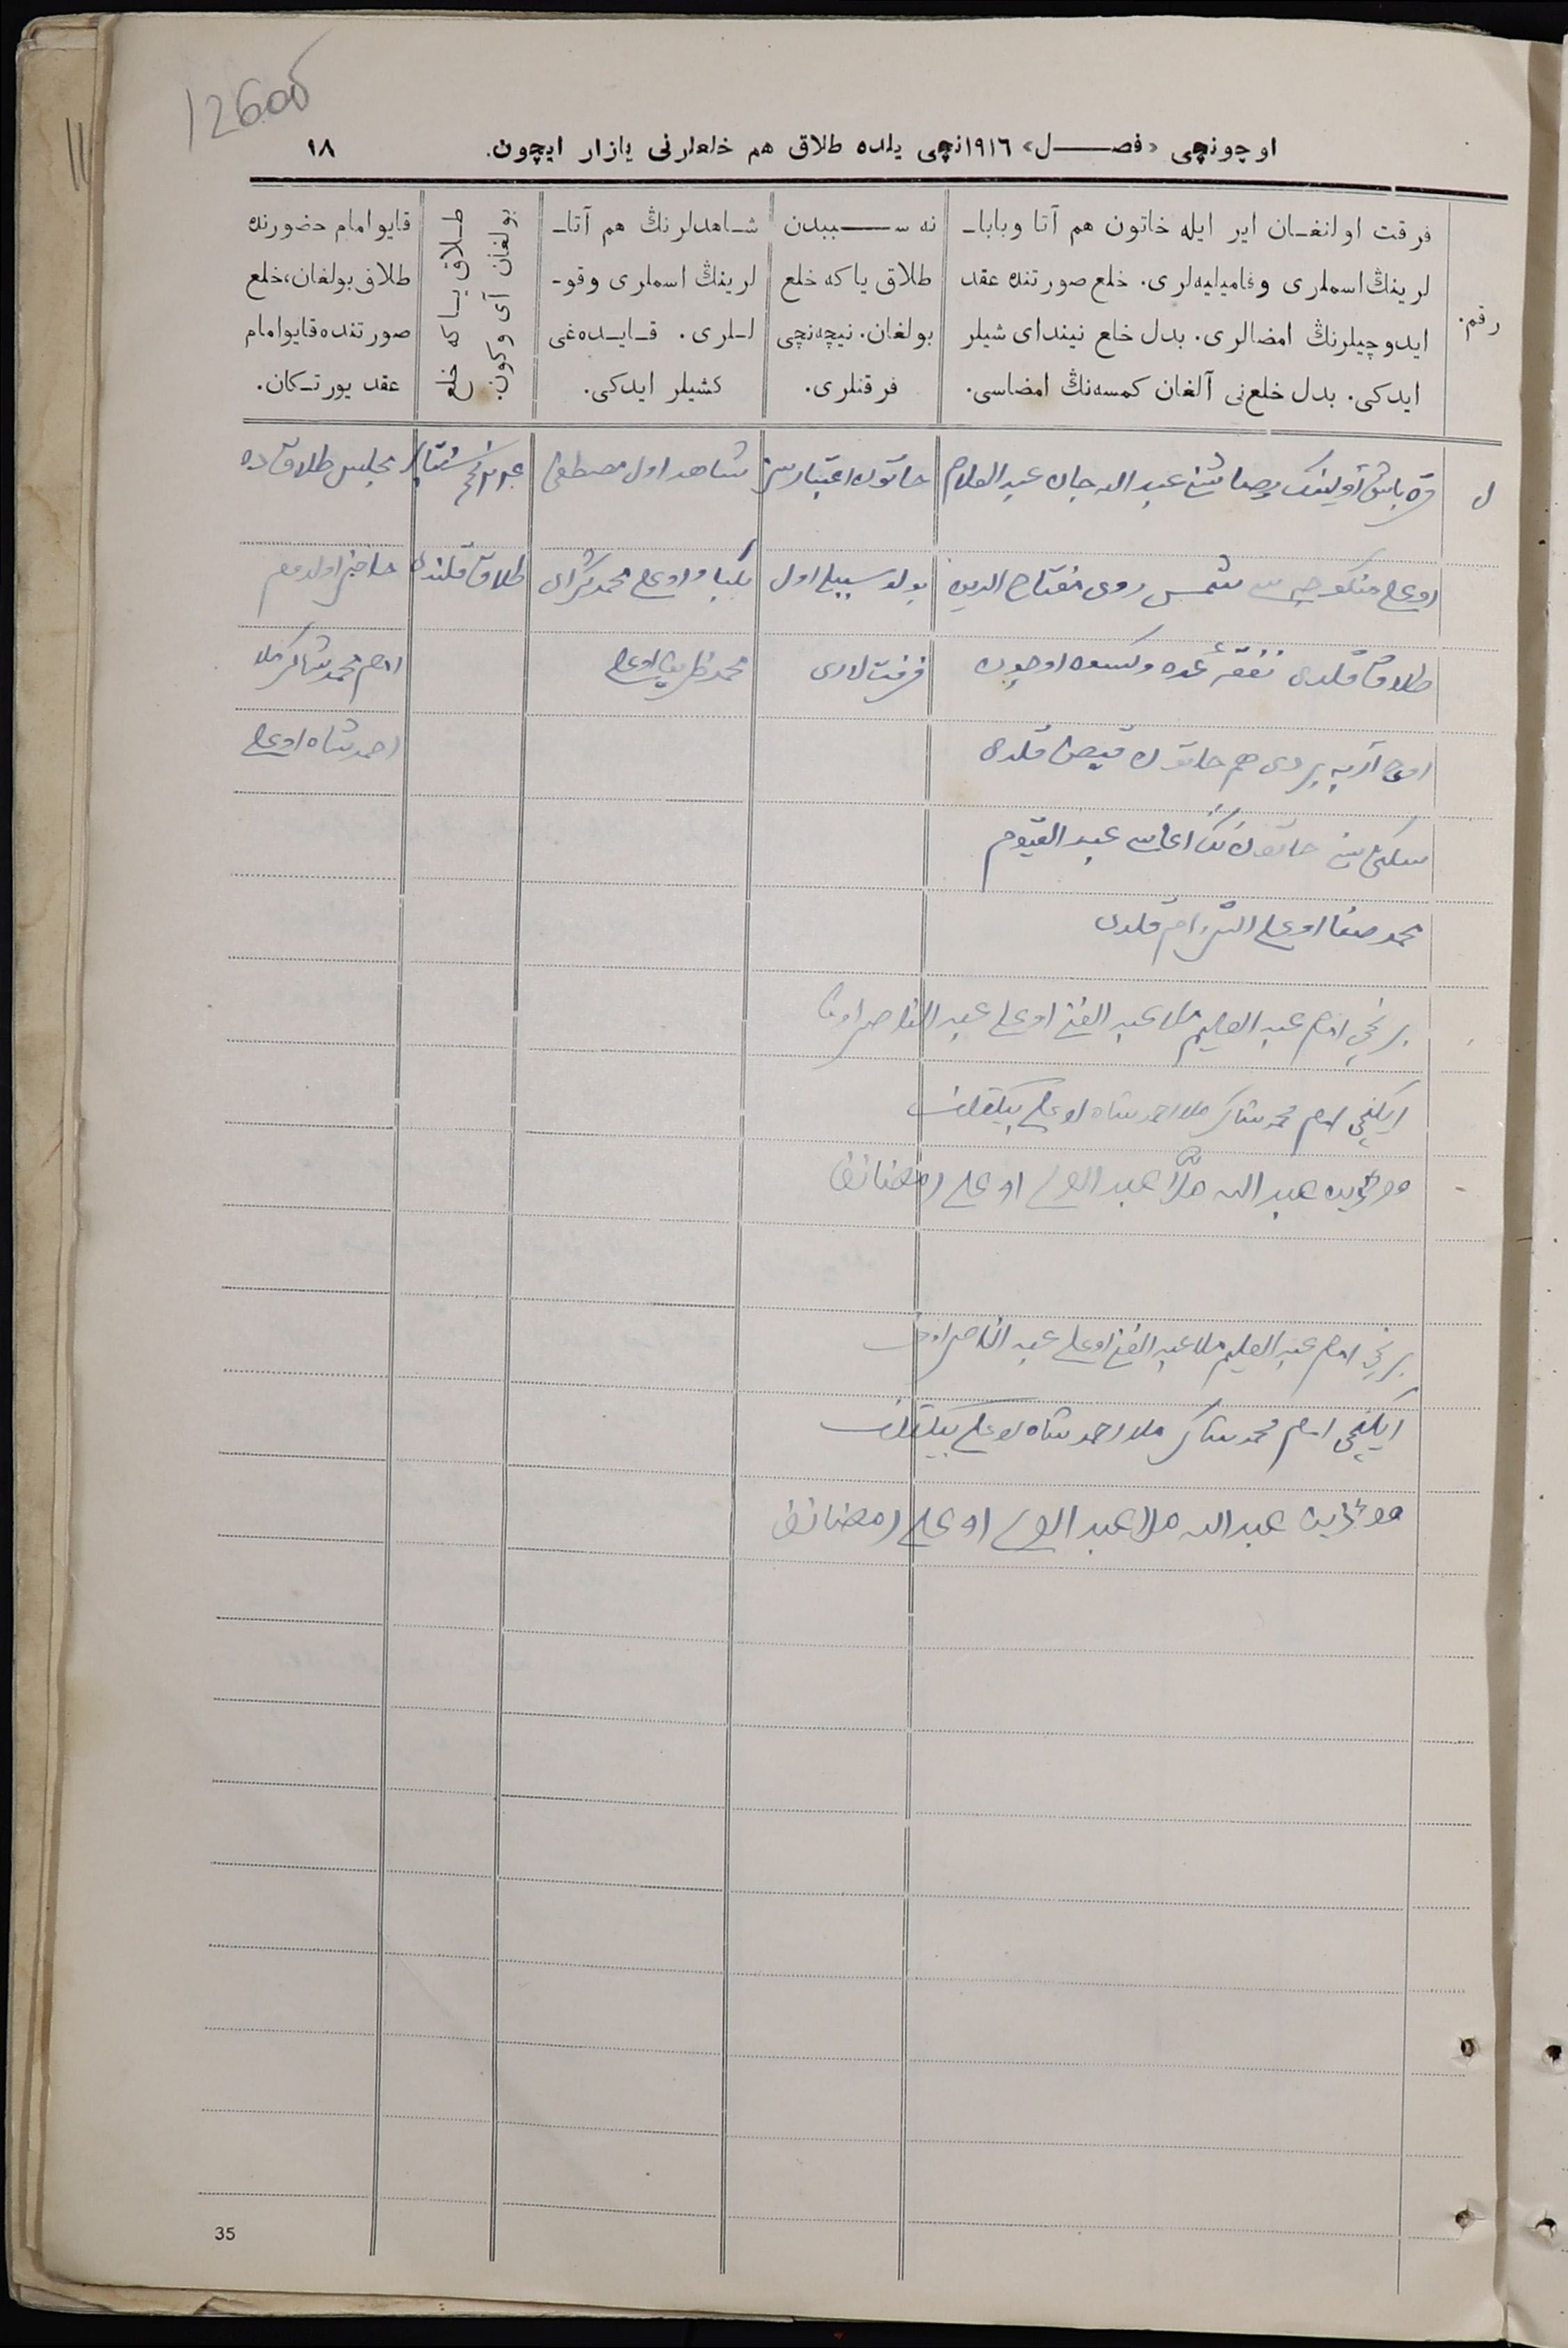 12606
اوچونچی «فصل» ١٩١٦نچی یلده طلاق هم خلعلرنی یازار ایچون.
١٨
رقم.
فرقت اولنغان ایر ایله خاتون هم آتا وبابا-
لرینڭ اسملری وفامیلیه‌لری. خلع صورتنده عقد
ایدوچیلرنڭ امضالری. بدل خلع نیندای شیلر
ایدکی. بدل خلع‌نی آلغان کمسه‌نڭ امضاسی.
نه سببدن
طلاق یاکه خلع
بولغان. نیچه‌نچی
فرقتلری.
شاهدلرنڭ هم آتا-
لرینڭ اسملری وقو-
للری. قایده‌غی
کشیلر ایدکی.
طلاق یاکه خلع
بولغان آی وکون
قایو امام حضورنده
طلاق بولغان، خلع
صورتنده قایو امام
عقد یورتکان.
عبد الله جان عبد العلام
اوغلی شمس مفتاح الدین
طلاق قلدی نفقهٔ عده وکسوه اوچون
بیردی هم خاتون قبض قلدی
خاتون نڭ اغاسی عبد القیوم
محمد صفا اوغلی التزام قلدی
خاتون اعتبارسز
بولو سببلی اول
فرقت لاری
شاهد اول مصطفی
اوغلی محمد کرای
محمد ظریف اوغلی
طلاق قلندی
مجلس طلاق ده
حاضر اولدم
امام محمد شاکر ملا
احمد شاه اوغلی
برنچی امام عبد العلیم ملا عبد الغنی اوغلی عبد الناصراوف
ایکنچی امام محمد شاکر ملا احمد شاه اوغلی بیکقلوف
مؤذن عبد الله ملا عبد الولی اوغلی رمضانف
برنچی امام عبد العلیم ملا عبد الغنی اوغلی عبد الناصراوف
ایکنچی امام محمد شاکر ملا احمد شاه اوغلی بیکقلوف
مؤذن عبد الله ملا عبد الولی اوغلی رمضانف
35